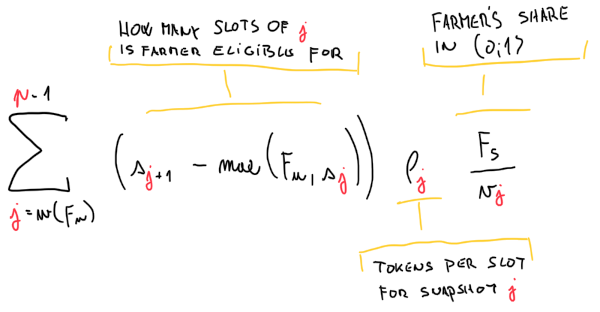 HOW MANY SLOTS OF j
IS FARMER ELIGIBLE FOR
FARMER'S SHARE
IN (0;1⟩
N-1
∑ (s_{j+1} - max(F_w, s_j)) ρ_j F_s / N_j
j = w(F_w)
TOKENS PER SLOT
FOR SNAPSHOT j